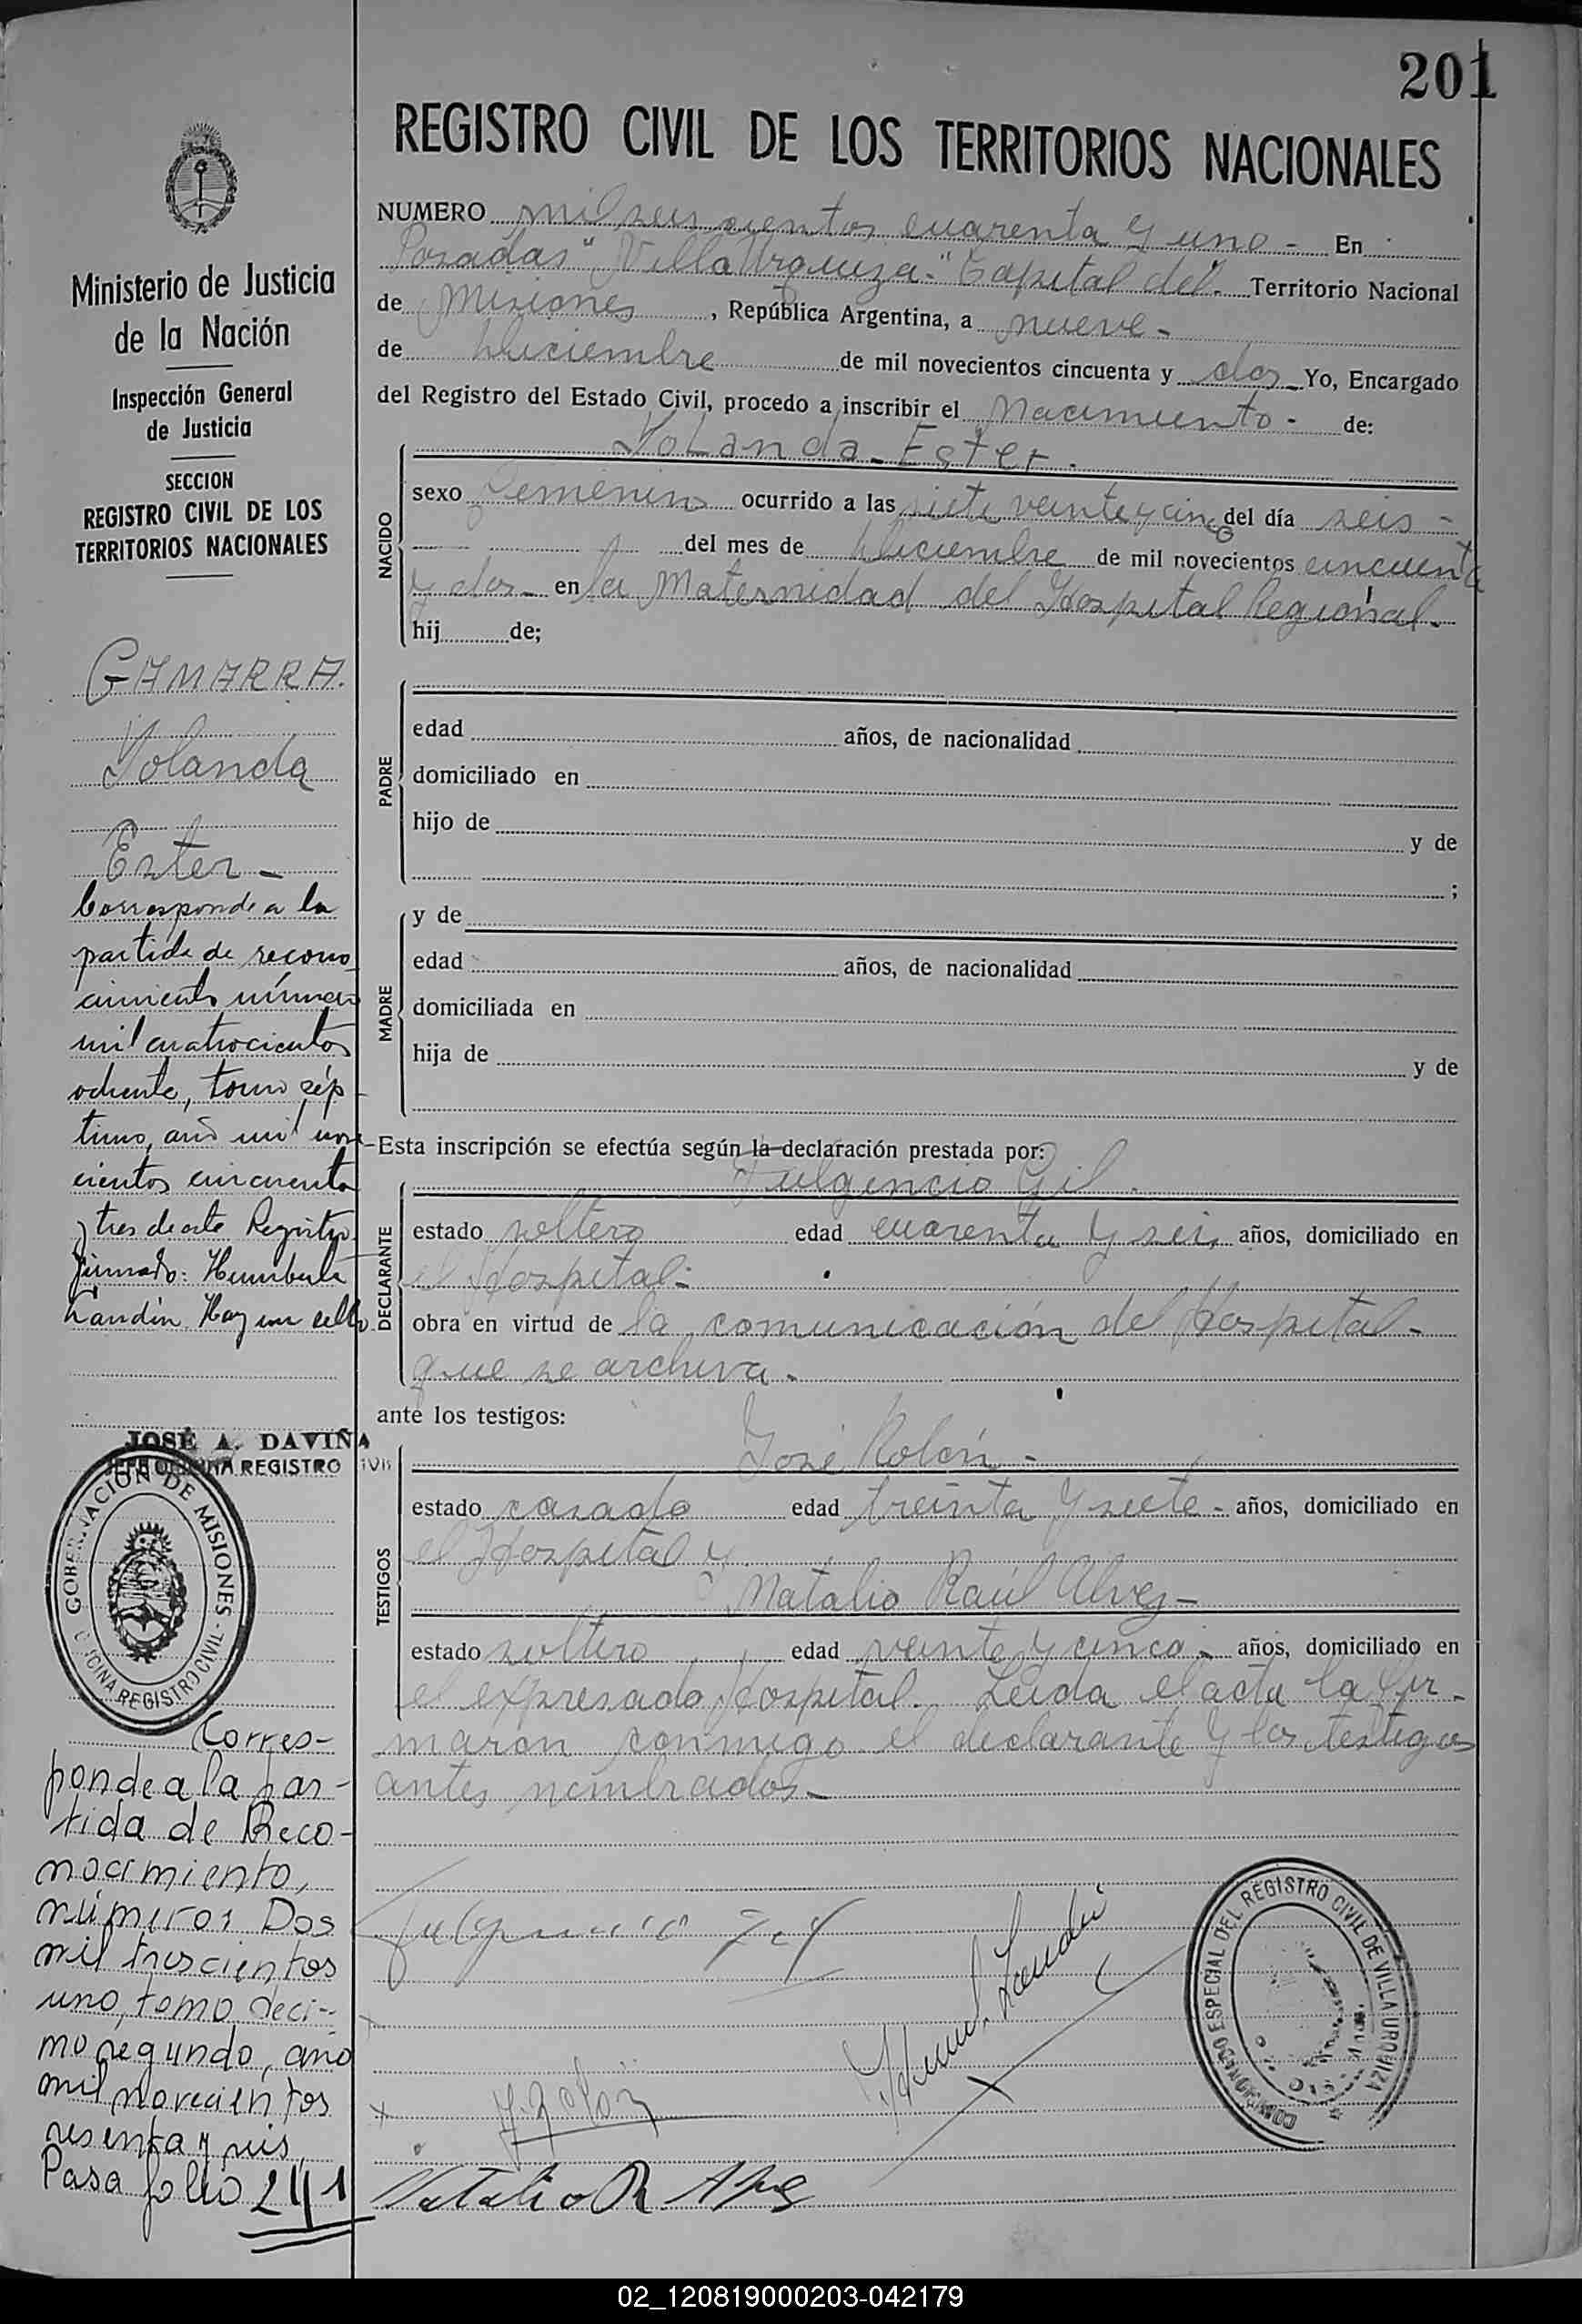 201
REGISTRO CIVIL DE LOS TERRITORIOS NACIONALES
Ministerio de Justicia
de la Nación
Inspección General
de Justicia
SECCION
REGISTRO CIVIL DE LOS
TERRITORIOS NACIONALES
GAMARRA.
Yolanda
Ester -
Corresponde a la
partida de recono
cimiento número
mil cuatrocientos
ochenta, tomo sép
timo, año mil nove
cientos cincuenta
y tres de este Registro
firmado: Humberto
Landin Hay un sello
JOSÉ A. DAVIÑA
JEFE OFICINA REGISTRO CIVIL
GOBERNACION DE MISIONES - OFICINA REGISTRO CIVIL -
Corres-
ponde a la par-
tida de Reco-
nocimiento,
números Dos
mil trescientos
uno, tomo deci-
mo segundo, año
mil novecientos
sesenta y seis
Pasa folio 241
NUMERO mil seis cientos cuarenta y uno - En
Posadas "Villa Urquiza-" Capital del Territorio Nacional
de Misiones, República Argentina, a nueve -
de Diciembre de mil novecientos cincuenta y dos Yo, Encargado
del Registro del Estado Civil, procedo a inscribir el Nacimiento - de:
Yolanda - Ester.
NACIDO
sexo femenino ocurrido a las siete veinte y cinco del día seis -
del mes de Diciembre de mil novecientos cincuenta
y dos - en la Maternidad del Hospital Regional.
hij de;
PADRE
edad años, de nacionalidad
domiciliado en
hijo de y de
;
MADRE
y de
edad años, de nacionalidad
domiciliada en
hija de y de
Esta inscripción se efectúa según la declaración prestada por:
DECLARANTE
Fulgencio Gil.
estado soltero edad cuarenta y seis años, domiciliado en
el Hospital -
obra en virtud de la comunicación del Hospital -
que se archiva -
ante los testigos:
TESTIGOS
José Rolón -
estado casado edad treinta y siete - años, domiciliado en
el Hospital y
Natalio Raúl Alves -
estado soltero edad veinte y cinco - años, domiciliado en
el expresado Hospital. Leida el acta la fir-
maron conmigo el declarante y los testigos
antes nombrados -
Fulgencio Gil
J. Rolón
Natalio R Alves
COMISIONADO ESPECIAL DEL REGISTRO CIVIL DE VILLA URQUIZA
02_120819000203-042179